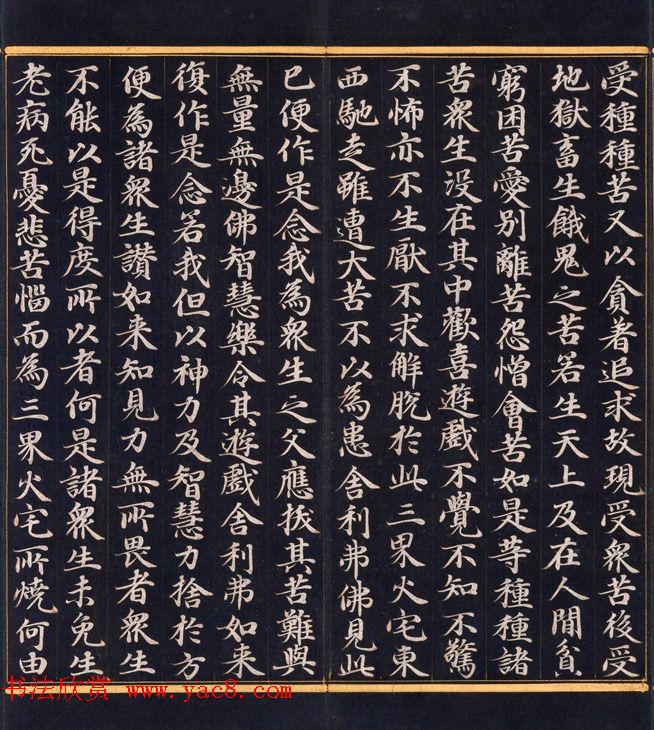 受種種苦又以貪著追求故現受眾苦後受
地獄畜生餓鬼之苦若生天上及在人間貧
窮困苦愛別離苦怨憎會苦如是等種種諸
苦眾生没在其中歡喜遊戲不覺不知不驚
不怖亦不生厭不求解脫於此三界火宅東
西馳走雖遭大苦不以為患舍利弗佛見此
已便作是念我為眾生之父應拔其苦難與
無量無邊佛智慧樂令其遊戲舍利弗如来
復作是念若我但以神力及智慧力捨於方
便為諸眾生讚如来知見力無所畏者眾生
不能以是得度所以者何是諸眾生未免生
老病死憂悲苦惱而為三界火宅所燒何由
书法欣赏 www.yac8.com